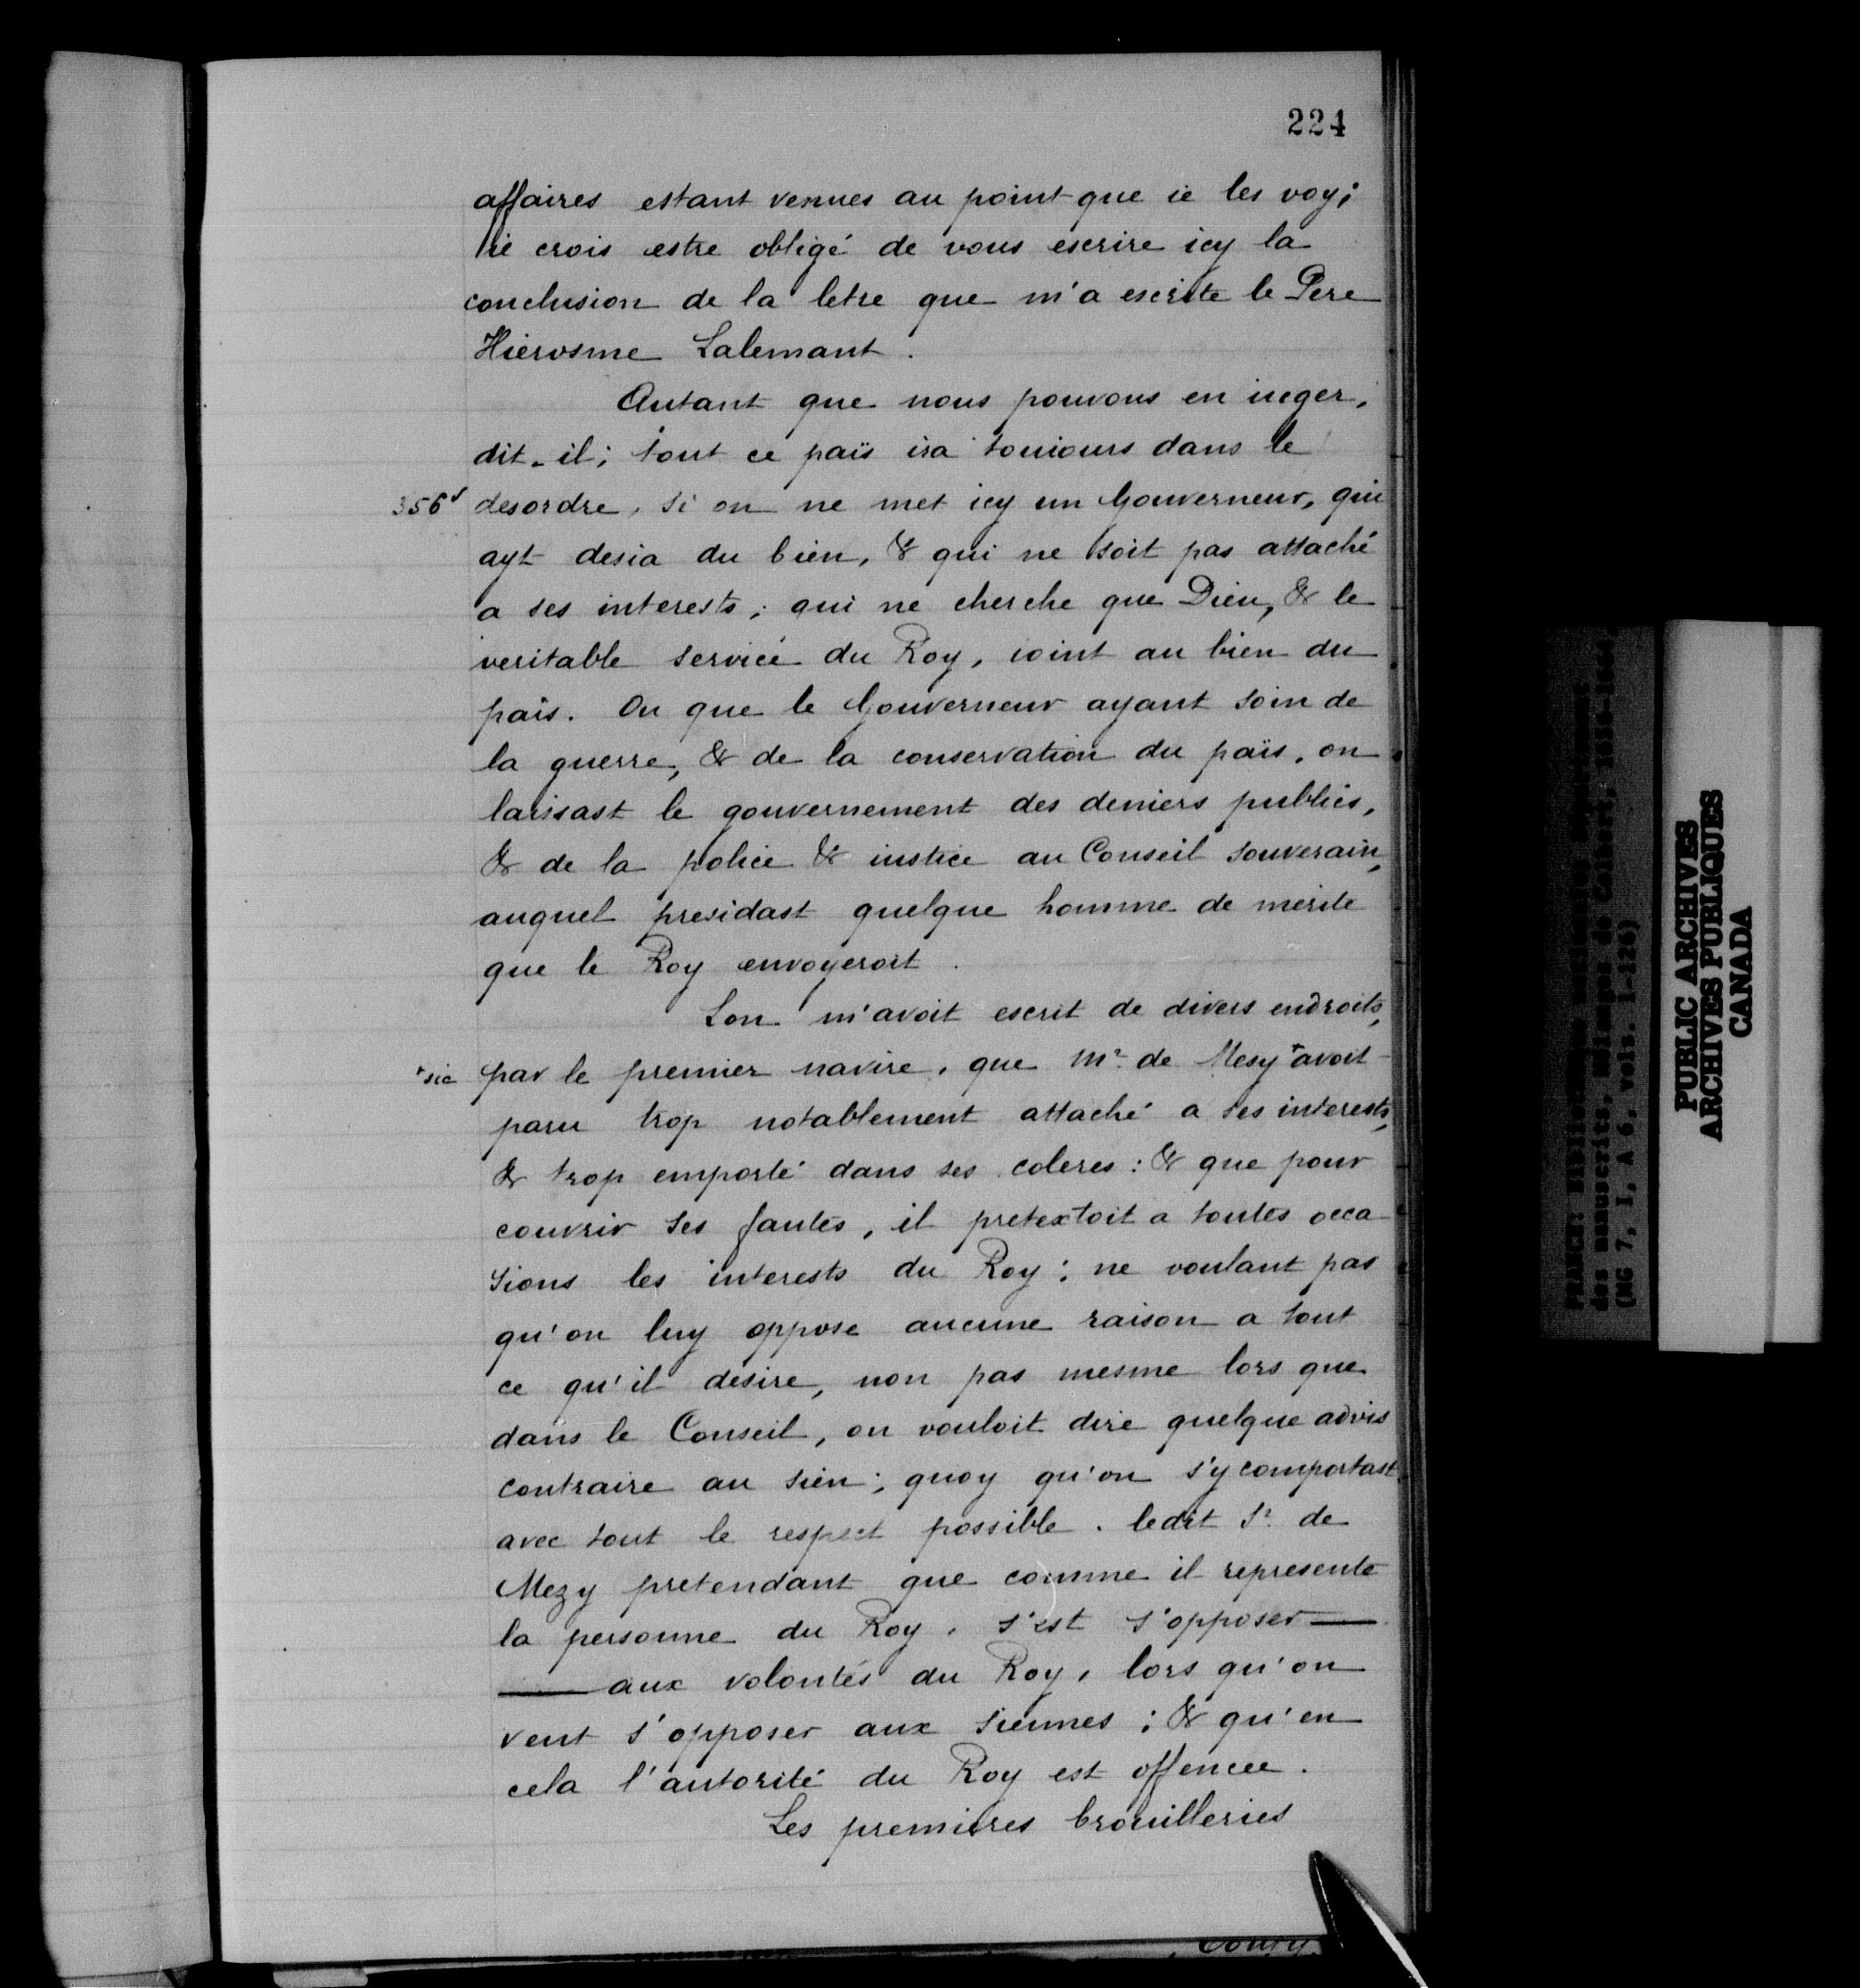 224
affaires estant venues au point que ie les voy;
ie crois estre obligé de vous escrire icy la
conclusion de la letre que m'a escrite le Pere
Hierosme Lalemant.
Autant que nous pouvons en iuger,
dit-il; tout ce païs ira touiours dans le
356v desordre, si on ne met icy un Gouverneur, qui
ayt desia du bien, & qui ne soit pas attaché
a ses interests; qui ne cherche que Dieu, & le
veritable service du Roy, ioint au bien du
païs. Ou que le Gouverneur ayant soin de
la guerre, & de la conservation du païs, on
laissast le gouvernement des deniers publics,
& de la police & iustice au Conseil souverain,
auquel presidast quelque homme de merite
que le Roy envoyeroit.
Lon m'avoit escrit de divers endroits,
+sic par le premier navire, que Mr de Mesy + avoit
paru trop notablement attaché a ses interests,
& trop emporté dans ses coleres: & que pour
couvrir ses fautes, il pretextoit a toutes occa-
sions les interests du Roy; ne voulant pas
qu'on luy oppose aucune raison a tout
ce qu'il desire, non pas mesme lors que
dans le Conseil, on vouloit dire quelque advis
contraire au sien; quoy qu'on s'y comportast
avec tout le respect possible. ledit Sr de
Mezy pretendant que comme il represente
la personne du Roy, s'est s'opposer —
— aux volontés du Roy, lors qu'on
veut s'opposer aux siennes; & qu'en
cela l'autorité du Roy est offencee.
Les premieres brouilleries
PUBLIC ARCHIVES
ARCHIVES PUBLIQUES
CANADA
des manuscrits, Mélanges de Colbert,
(MG 7, I, A 6, vols. 1-126)